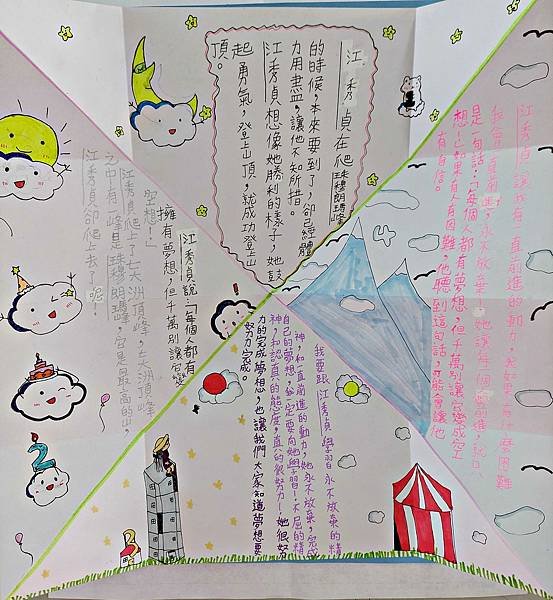 江秀貞在爬珠穆朗瑪峰
的時候，本來要到了，卻已經體
力用盡，讓他不知所措。
江秀貞想像她勝利的樣子，她鼓
起勇氣，登上山頂，就成功登上山
頂。
江秀貞 讓我有一直前進的動力，
永不放棄！她讓每個
是一句話：「每個人都有夢想，但千萬別讓它變成空
想！」如果有人有困難，他聽到這句話，可能會讓他
有自信。
江秀貞說：「每個人都有
擁有夢想，但千萬別讓它變
空想！」
江秀貞爬上了七大洲頂峰，七大洲頂峰
之中有一峰是珠穆朗瑪峰，它是最高的山，
江秀貞卻爬上去了呢！
我要跟江秀貞學習永不放棄的精
神，和一直前進的動力，她永不放棄，完成
自己的夢想，我一定要向她學習！不屈的精
神，和認真的態度，真的很努力！她很努
力的完成夢想，也讓我們大家知道夢想要
努力完成。
2